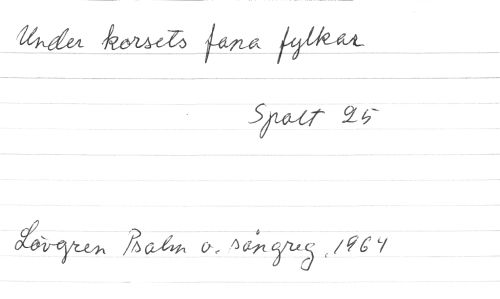 Under korsets fana fylkar
Spalt 25
Lövgren Psalm o. sångreg. 1964